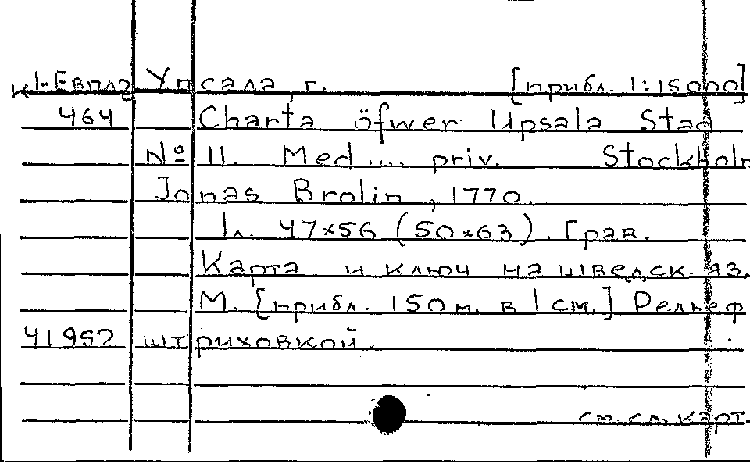 к1-Евп12 Упсала, г. [прибл. 1:15000]
464 Charta öfwer Upsala Stad
Nº 11. Med .... priv. Stockholm
Jonas Brolin, 1770.
1л. 47×56 (50×63). Грав.
Карта и ключ на шведск. яз.
М. [прибл. 150 м. в 1 см.] Рельеф
41952 штриховкой.
см. сл. карт.